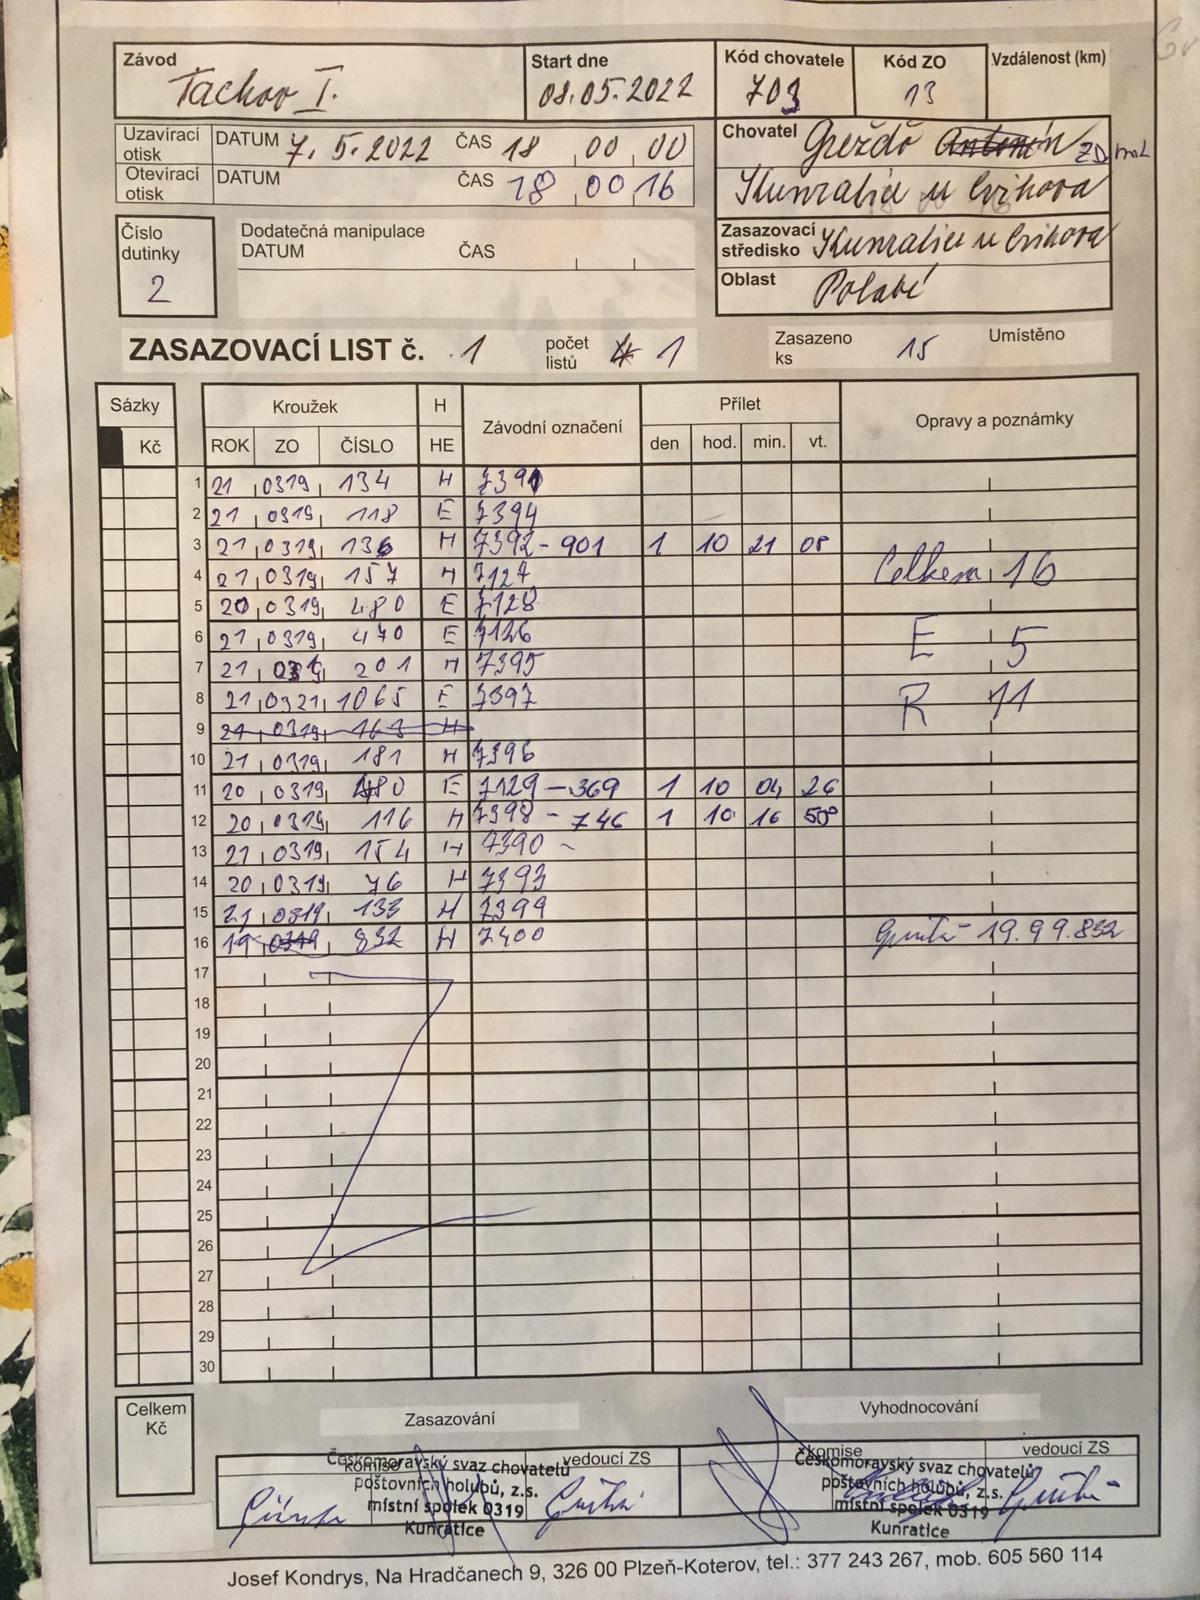 Závod Start dne Kód chovatele Kód ZO Vzdálenost (km)
Tachov I. 08.05.2022 703 13
Uzavírací otisk DATUM 7. 5. 2022 ČAS 18 00 00
Otevírací otisk DATUM ČAS 18 00 16
Chovatel Grežďo Antonín ZD
Kunratice u Cvikova
Zasazovací středisko Kunratice u Cvikova
Oblast Polabí
Číslo dutinky 2
Dodatečná manipulace
DATUM ČAS
ZASAZOVACÍ LIST č. 1 počet listů 1 Zasazeno ks 15 Umístěno
Sázky Kroužek H Závodní označení Přílet Opravy a poznámky
Kč ROK ZO ČÍSLO HE den hod. min. vt.
1 21 0319 134 H 7391
2 21 0319 118 E 7394
3 21 0319 136 H 7392 - 901 1 10 21 08
4 21 0319 157 H 7127 Celkem 16
5 20 0319 480 E 7128
6 21 0319 470 E 7126 E 5
7 21 0319 201 H 7395
8 21 0321 1065 E 7397 R 11
9 21 0319 163 H
10 21 0319 181 H 7396
11 20 0319 480 E 7129 - 369 1 10 04 26
12 20 0319 116 H 7398 - 746 1 10 16 50
13 21 0319 154 H 7390 -
14 20 0319 76 H 7393
15 21 0319 133 H 7399
16 19 0319 832 H 7400 19.99.832
17
18
19
20
21
22
23
24
25
26
27
28
29
30
Celkem Kč
Zasazování Vyhodnocování
komise vedoucí ZS komise vedoucí ZS
Českomoravský svaz chovatelů Českomoravský svaz chovatelů
poštovních holubů, z.s. poštovních holubů, z.s.
místní spolek 0319 místní spolek 0319
Kunratice Kunratice
Josef Kondrys, Na Hradčanech 9, 326 00 Plzeň-Koterov, tel.: 377 243 267, mob. 605 560 114